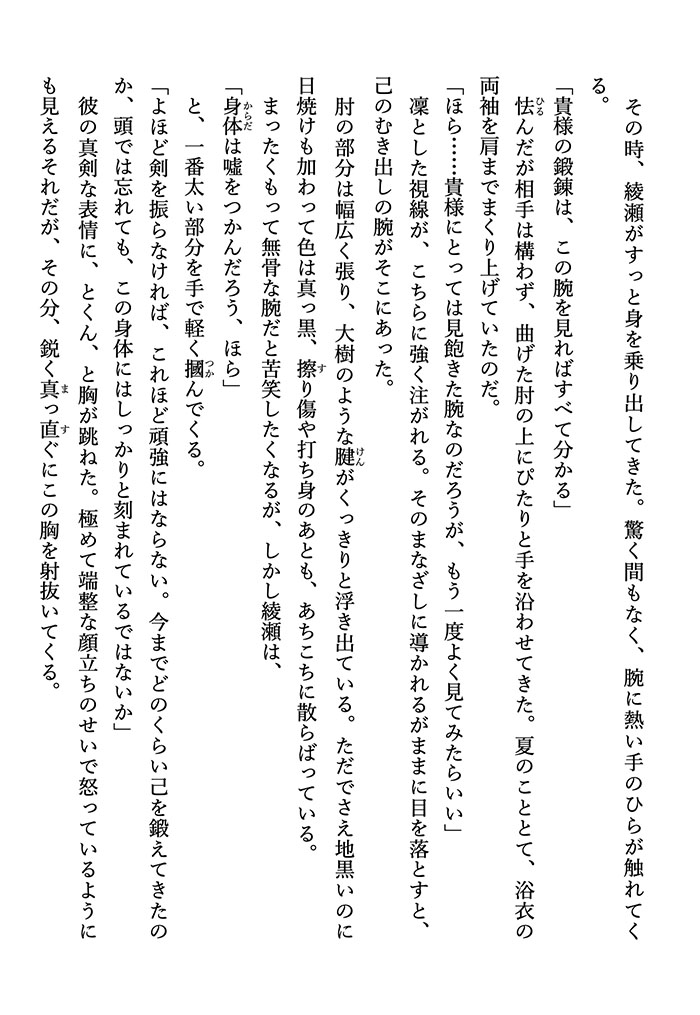 その時、綾瀬がすっと身を乗り出してきた。驚く間もなく、腕に熱い手のひらが触れてく
る。
「貴様の鍛錬は、この腕を見ればすべて分かる」
　怯んだが相手は構わず、曲げた肘の上にぴたりと手を沿わせてきた。夏のこととて、浴衣の
両袖を肩までまくり上げていたのだ。
「ほら……貴様にとっては見飽きた腕なのだろうが、もう一度よく見てみたらいい」
　凜とした視線が、こちらに強く注がれる。そのまなざしに導かれるがままに目を落とすと、
己のむき出しの腕がそこにあった。
　肘の部分は幅広く張り、大樹のような腱がくっきりと浮き出ている。ただでさえ地黒いのに
日焼けも加わって色は真っ黒、擦り傷や打ち身のあとも、あちこちに散らばっている。
　まったくもって無骨な腕だと苦笑したくなるが、しかし綾瀬は、
「身体は嘘をつかんだろう、ほら」
　と、一番太い部分を手で軽く摑んでくる。
「よほど剣を振らなければ、これほど頑強にはならない。今までどのくらい己を鍛えてきたの
か、頭では忘れても、この身体にはしっかりと刻まれているではないか」
　彼の真剣な表情に、とくん、と胸が跳ねた。極めて端整な顔立ちのせいで怒っているように
も見えるそれだが、その分、鋭く真っ直ぐにこの胸を射抜いてくる。